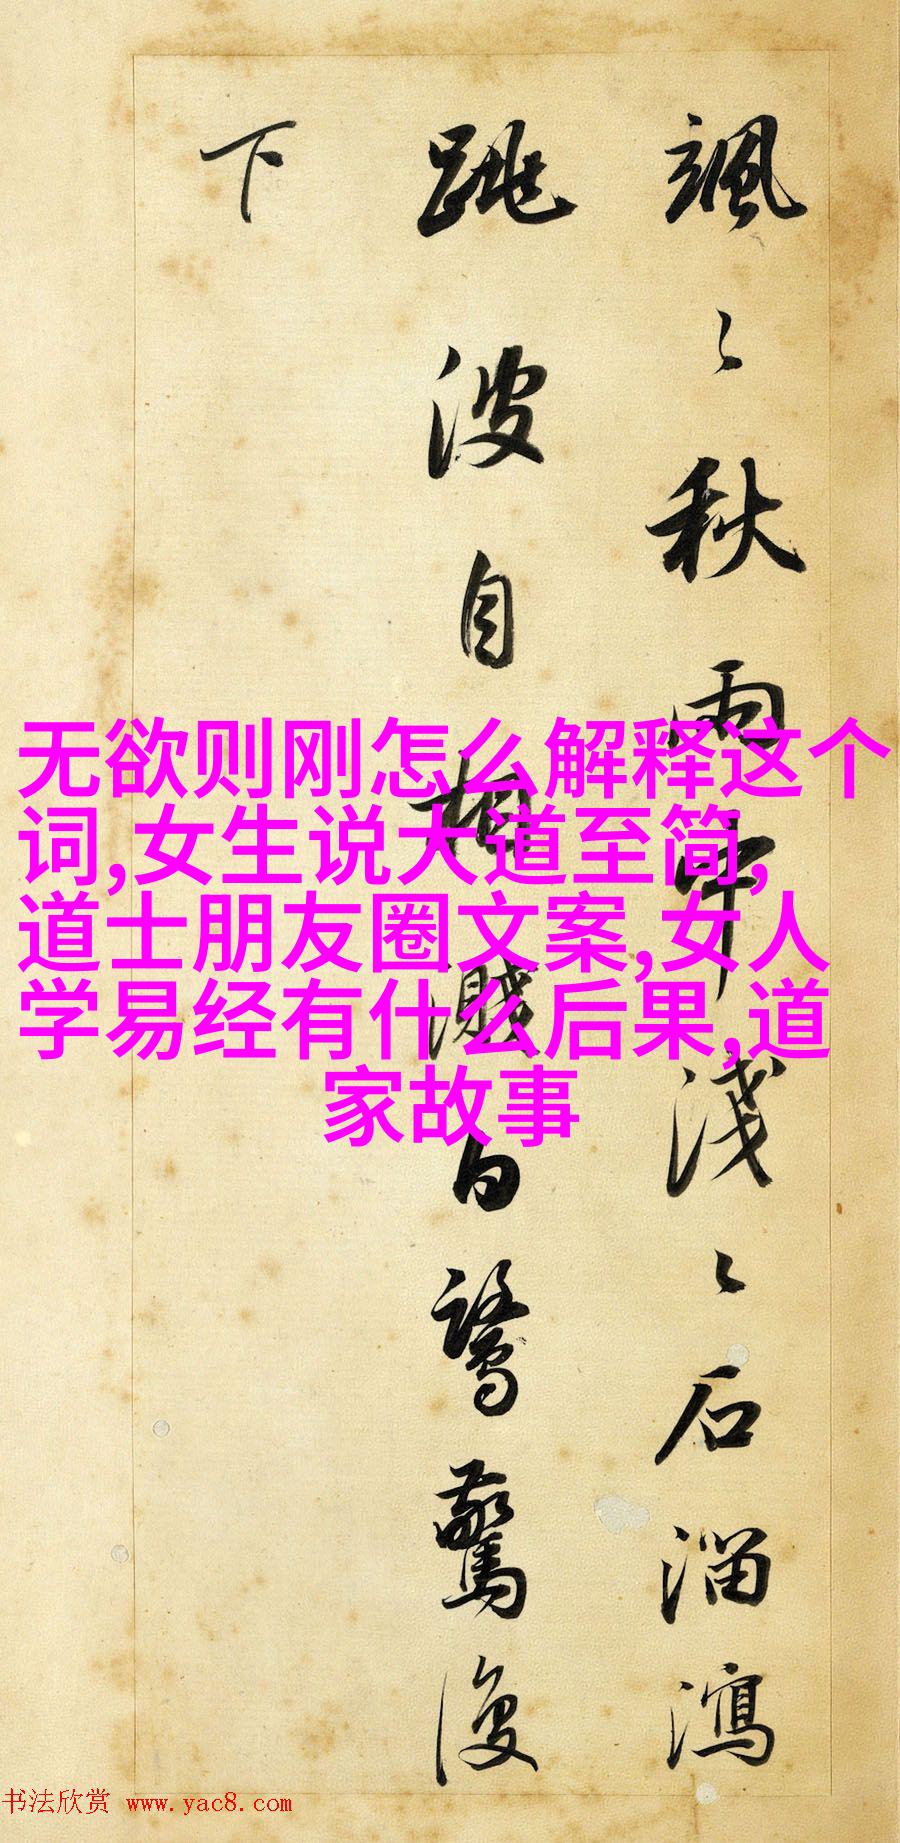 飒〻秋雨中浅〻石溜泻
跳波自相溅白鹭惊复
下
无欲则刚怎么解释这个
词,女生说大道至简,
道士朋友圈文案,女人
学易经有什么后果,道
家故事
书法欣赏 www.yac8.com